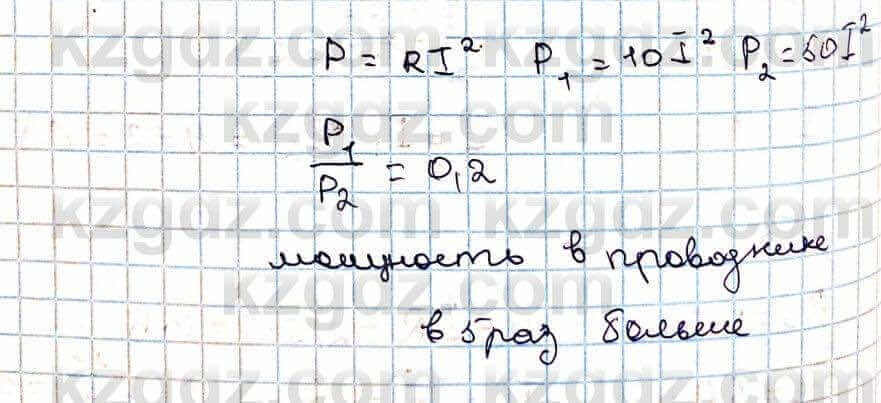 P = RI² P₁ = 10I² P₂ = 50I²
P₁/P₂ = 0,2
мощность в проводнике
в 5 раз больше
kzgdz.com kzgdz.com
kzgdz.com
kzgdz.com kzgdz.com
kzgdz.com
kzgdz.com kzgdz.com